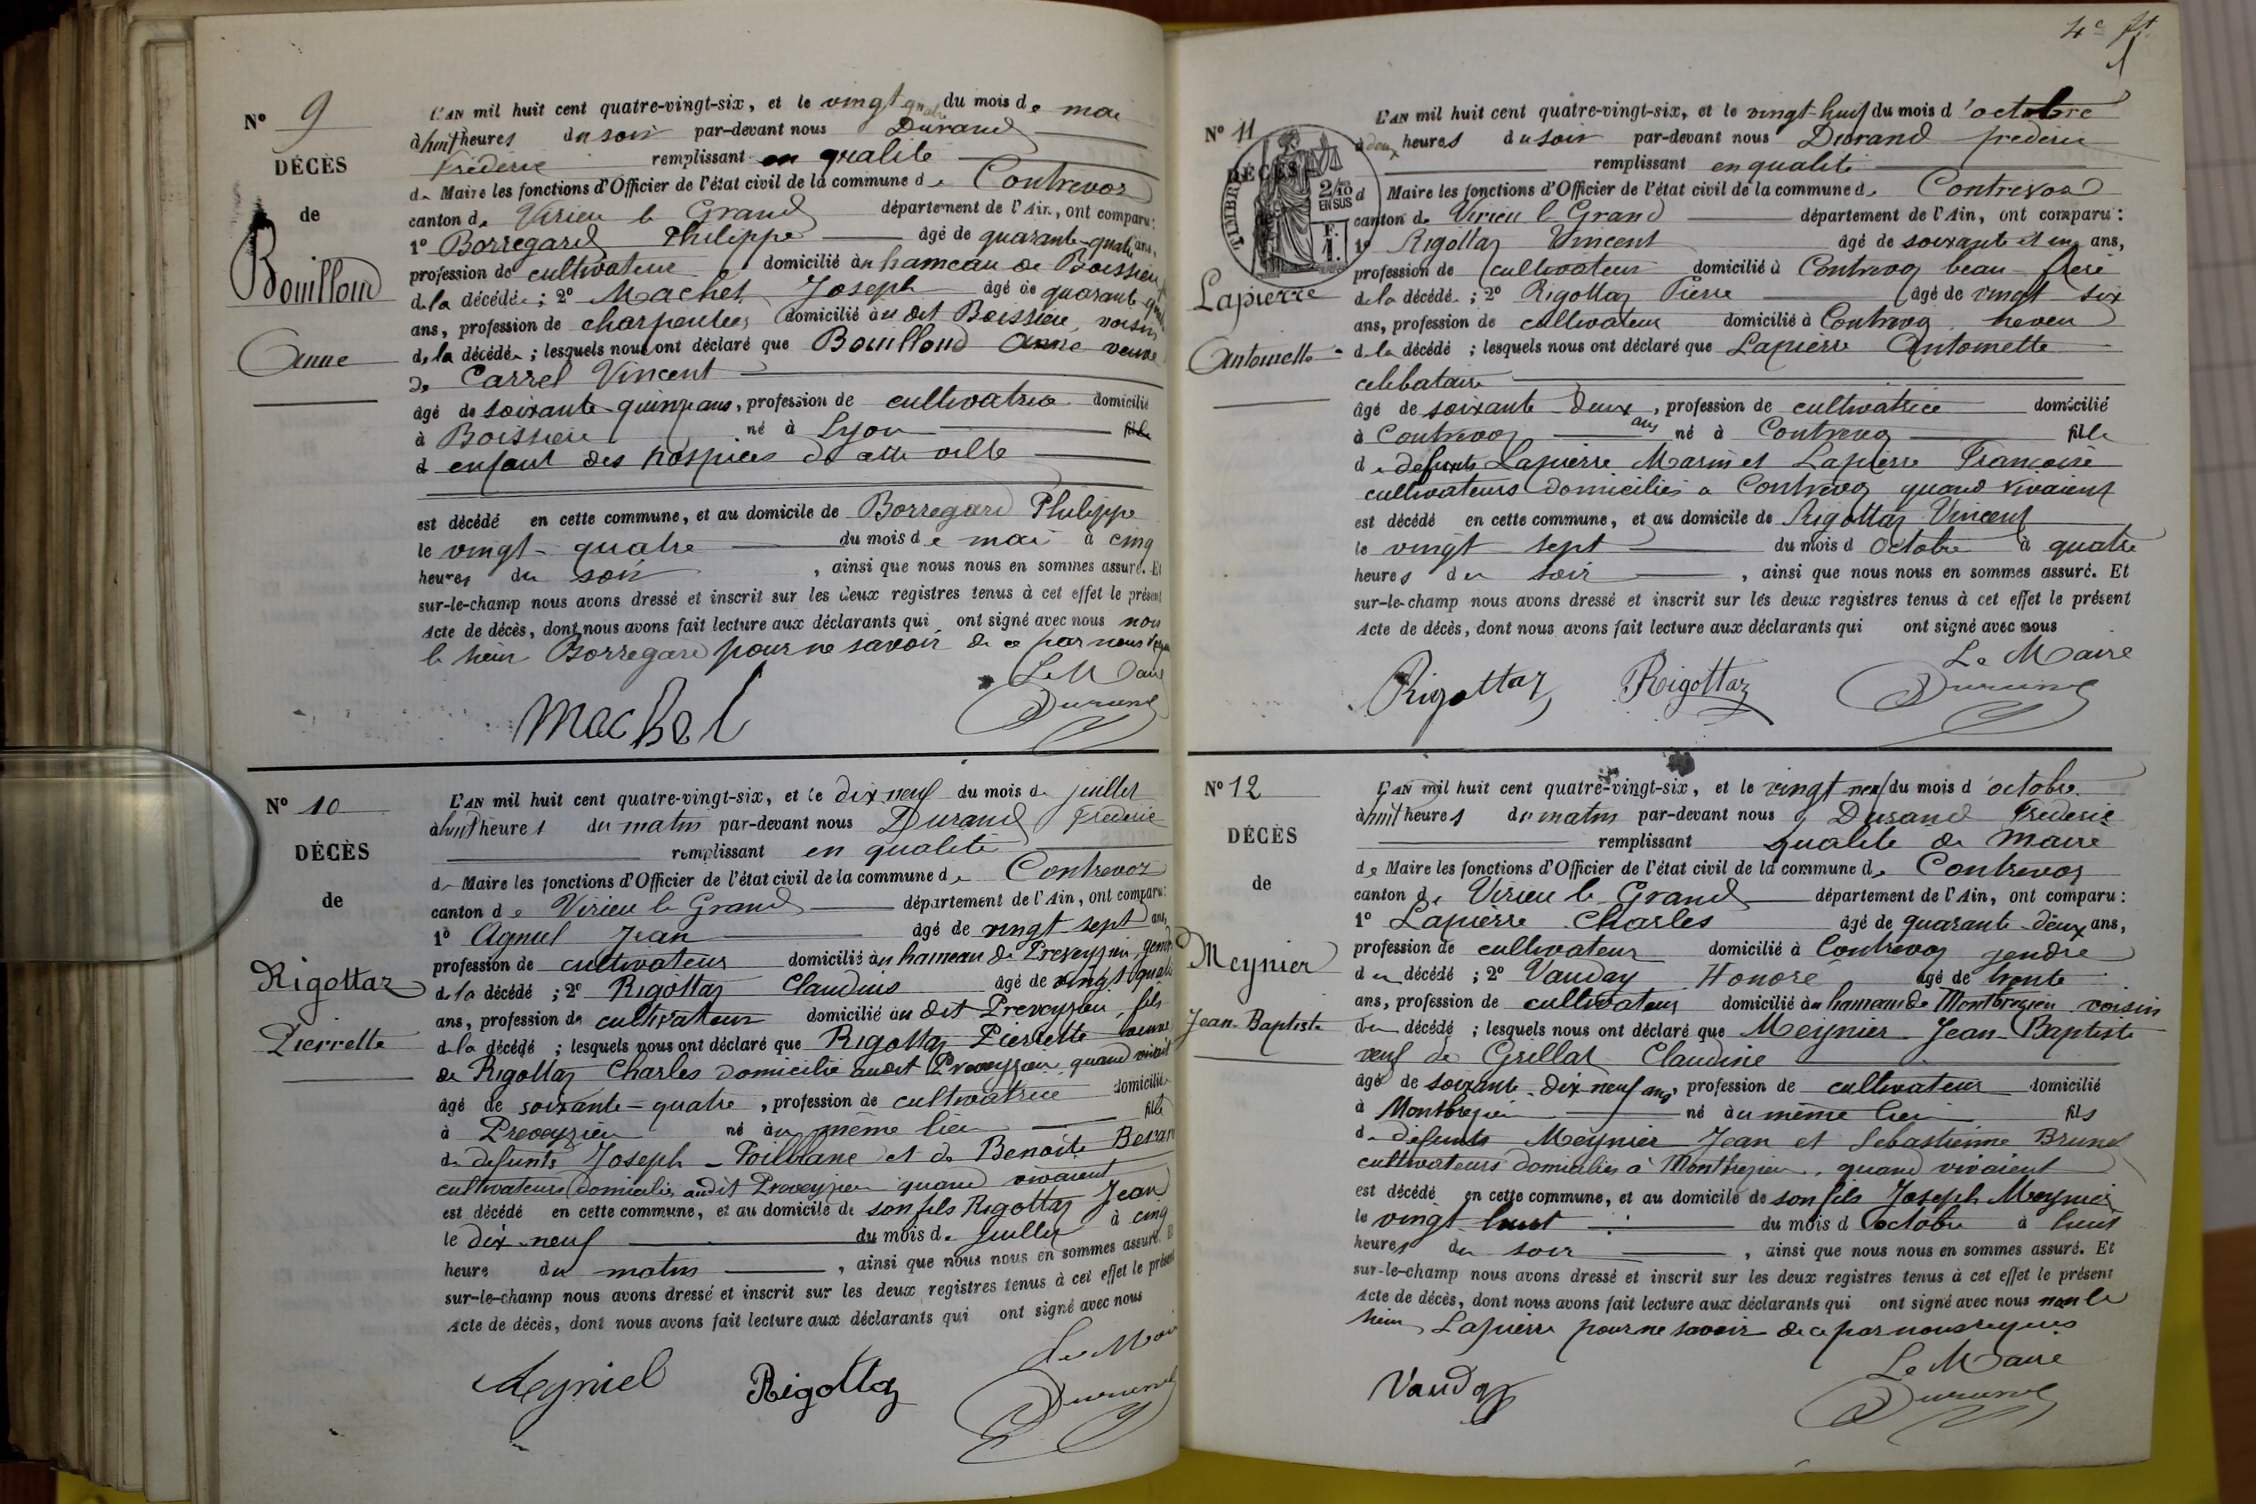 Nº 9
DÉCÈS
de
Bouilloud
Anne
L'AN mil huit cent quatre-vingt-six, et le vingt quatre du mois de mai
à huit heures du soir par-devant nous Durand
Frédéric remplissant en qualité
de Maire les fonctions d'Officier de l'état civil de la commune de Contrevoz
canton de Virieu le Grand département de l'Ain, ont comparu :
1º Borregard Philippe âgé de quarante-quatre ans,
profession de cultivateur domicilié au hameau de Boissieu
de la décédée ; 2º Machet Joseph âgé de quarante
ans, profession de charpentier domicilié au dit Boissieu, voisin
de la décédée ; lesquels nous ont déclaré que Bouilloud Anne veuve
de Carrel Vincent
âgé de soixante-quinze ans, profession de cultivatrice domicilié
à Boissieu né à Lyon fille
d enfant des hospices de cette ville
est décédé en cette commune, et au domicile de Borregard Philippe
le vingt-quatre du mois de mai à cinq
heures du soir , ainsi que nous nous en sommes assuré. Et
sur-le-champ nous avons dressé et inscrit sur les deux registres tenus à cet effet le présent
Acte de décès, dont nous avons fait lecture aux déclarants qui ont signé avec nous non
le sieur Borregard pour ne savoir de ce par nous requis
Le Maire
Machet Durand
Nº 10
DÉCÈS
de
Rigottaz
Pierrette
L'AN mil huit cent quatre-vingt-six, et le dix neuf du mois de juillet
à huit heures du matin par-devant nous Durand Frederic
remplissant en qualité
de Maire les fonctions d'Officier de l'état civil de la commune de Contrevoz
canton de Virieu le Grand département de l'Ain, ont comparu :
1º Agniel Jean âgé de vingt sept ans,
profession de cultivateur domicilié au hameau de Preveyzieu, gendre
de la décédé ; 2º Rigottaz Claudius âgé de vingt quatre
ans, profession de cultivateur domicilié au dit Preveyzieu, fils
de la décédé ; lesquels nous ont déclaré que Rigottaz Pierrette veuve
de Rigottaz Charles domicilié audit Preveyzieu quand vivait
âgé de soixante-quatre , profession de cultivatrice domicilié
à Preveyzieu né au même lieu fille
de defunts Joseph Poilblanc et de Benoite
cultivateurs domiciliés audit Preveyzieu quand vivaient
est décédé en cette commune, et au domicile de son fils Rigottaz Jean
le dix-neuf du mois de juillet à cinq
heures du matin , ainsi que nous nous en sommes assuré. Et
sur-le-champ nous avons dressé et inscrit sur les deux registres tenus à cet effet le présent
Acte de décès, dont nous avons fait lecture aux déclarants qui ont signé avec nous
Le Maire
Agniel Rigottaz Durand
4e ft
Nº 11
DÉCÈS
TIMBRE
2/10
EN SUS
F.
1.
Lapierre
Antoinette
L'AN mil huit cent quatre-vingt-six, et le vingt-huit du mois d'octobre
à deux heures du soir par-devant nous Durand frederic
remplissant en qualité
d Maire les fonctions d'Officier de l'état civil de la commune de Contrevoz
canton de Virieu le Grand département de l'Ain, ont comparu :
1º Rigottaz Vincent âgé de soixante et un ans,
profession de cultivateur domicilié à Contrevoz beau-frère
de la décédé ; 2º Rigottaz Pierre âgé de vingt six
ans, profession de cultivateur domicilié à Contrevoz neveu
de la décédé ; lesquels nous ont déclaré que Lapierre Antoinette
celibataire
âgé de soixante-deux ans, profession de cultivatrice domicilié
à Contrevoz né à Contrevoz fille
de defunts Lapierre Marin et Lapierre Françoise
cultivateurs domiciliés a Contrevoz quand vivaient
est décédé en cette commune, et au domicile de Rigottaz Vincent
le vingt sept du mois d octobre à quatre
heures du soir , ainsi que nous nous en sommes assuré. Et
sur-le-champ nous avons dressé et inscrit sur les deux registres tenus à cet effet le présent
Acte de décès, dont nous avons fait lecture aux déclarants qui ont signé avec nous
Le Maire
Rigottaz Rigottaz Durand
Nº 12
DÉCÈS
de
Meynier
Jean-Baptiste
L'AN mil huit cent quatre-vingt-six, et le vingt neuf du mois d'octobre
à huit heures du matin par-devant nous Durand Frederic
remplissant qualité de Maire
de Maire les fonctions d'Officier de l'état civil de la commune de Contrevoz
canton de Virieu le Grand département de l'Ain, ont comparu :
1º Lapierre Charles âgé de quarante-deux ans,
profession de cultivateur domicilié à Contrevoz gendre
du décédé ; 2º Vauday Honoré âgé de trente
ans, profession de cultivateur domicilié au hameau de Montbrezieu voisin
du décédé ; lesquels nous ont déclaré que Meynier Jean-Baptiste
veuf de Grillat Claudine
âgé de soixante-dix neuf ans, profession de cultivateur domicilié
à Montbrezieu né au même lieu fils
de défunts Meynier Jean et Sebastienne Brunet
cultivateurs domiciliés à Montbrezieu, quand vivaient
est décédé en cette commune, et au domicile de son fils Joseph Meynier
le vingt huit du mois d octobre à huit
heures du soir , ainsi que nous nous en sommes assuré. Et
sur-le-champ nous avons dressé et inscrit sur les deux registres tenus à cet effet le présent
Acte de décès, dont nous avons fait lecture aux déclarants qui ont signé avec nous non le
sieur Lapierre pour ne savoir de ce par nous requis
Le Maire
Vauday Durand